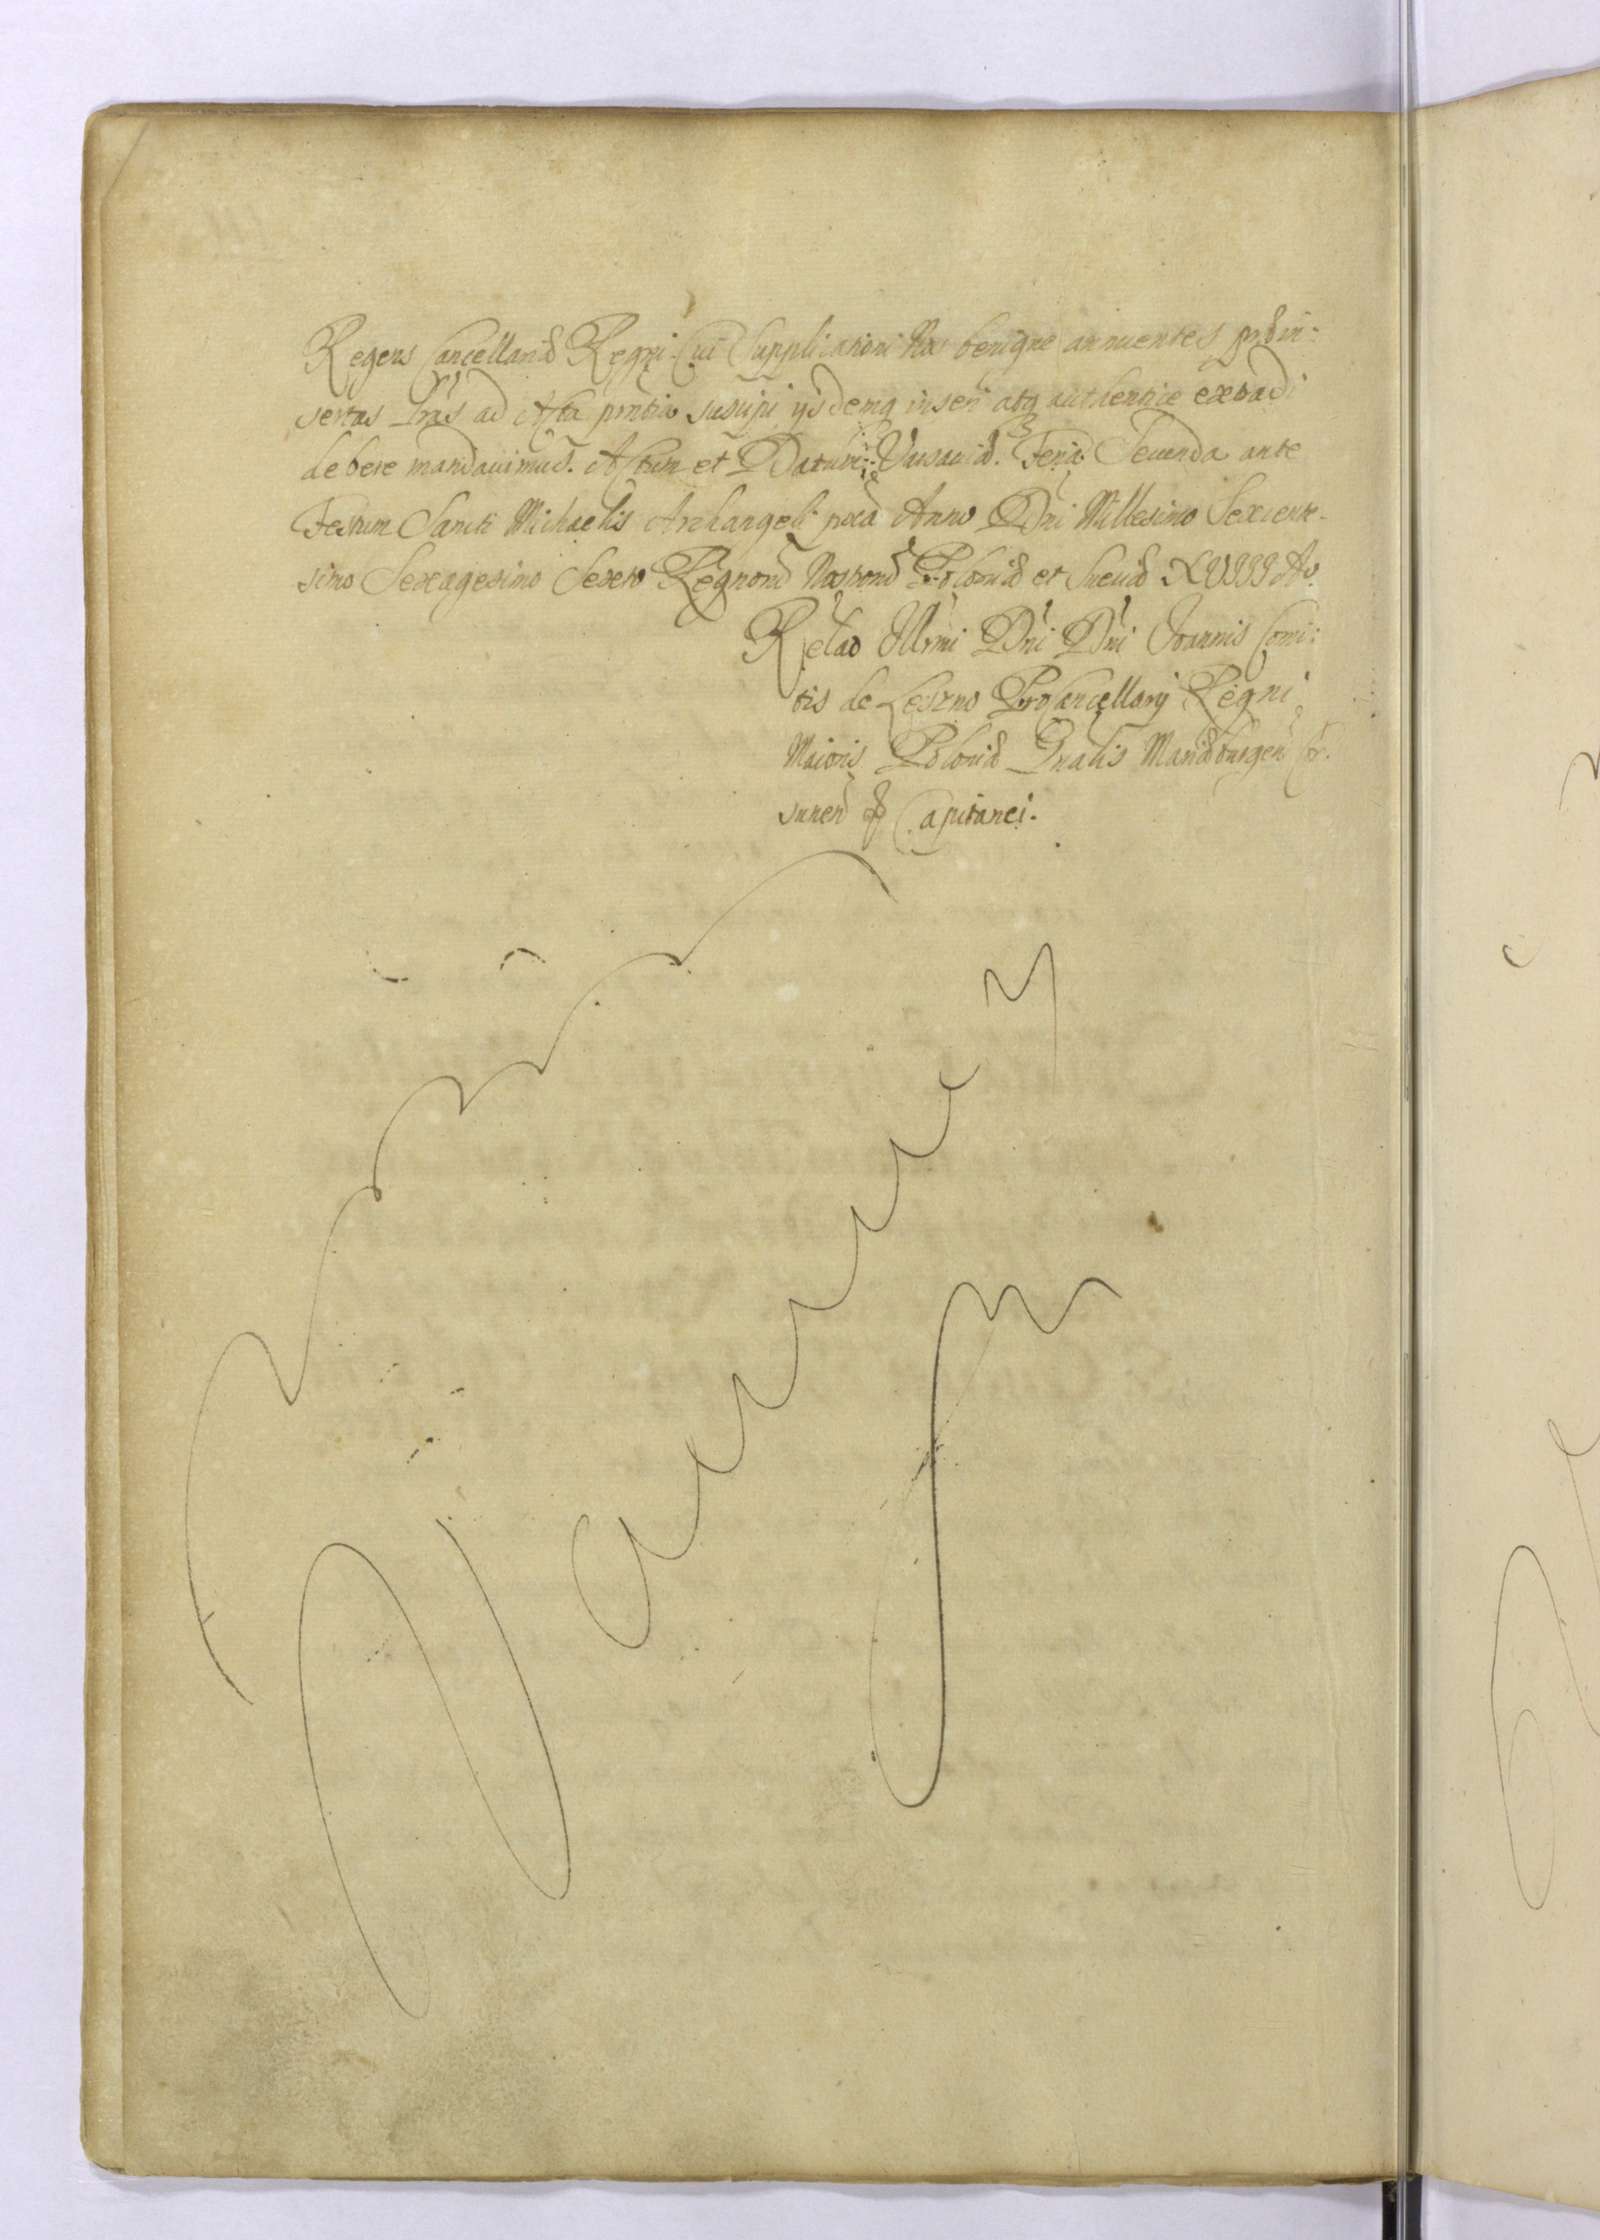 Regens Cancellariæ Regni. Cui Supplicationi Nos benigne annuentes præin:
sertas Lras ad Acta pntia suscipi ijsdemq inseri atq authentice extradi
debere mandavimus. Actum et Datum Varsaviæ. Feria Secunda ante
Festum Sancti Michaelis Archangeli pxa Anno Dni Millesimo Sexcente-
simo Sexagesimo Sexto Regnorū Nostrorū Poloniæ et Sueciæ XVIII Ao.
Relao Illrmi Dni Dni Joannis Comi:
tis de Leszno ProCancellarij Regni
Maioris Poloniæ Gnalis Mariæburgen
sunen Capitanei.